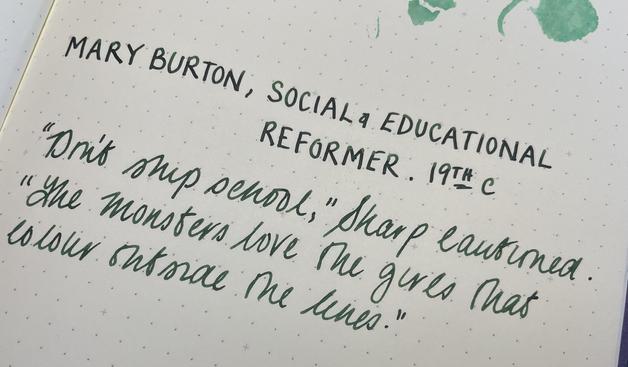 MARY BURTON, SOCIAL & EDUCATIONAL
REFORMER. 19TH C
"Don't skip school," Sharp cautioned.
"The monsters love the girls that
colour outside the lines."